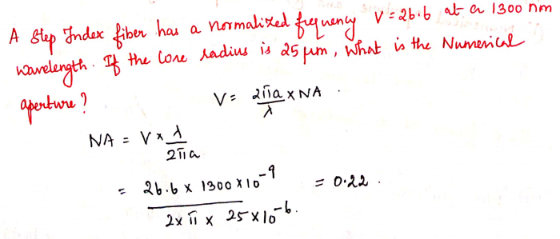 A Step Index fiber has a normalized frequency V = 26.6 at a 1300 nm
wavelength. If the Core radius is 25 μm, What is the Numerical
aperture?
V = 2πa/λ x NA.
NA = V x λ/2πa
= 26.6 x 1300 x 10⁻⁹ / 2 x π x 25 x 10⁻⁶. = 0.22.